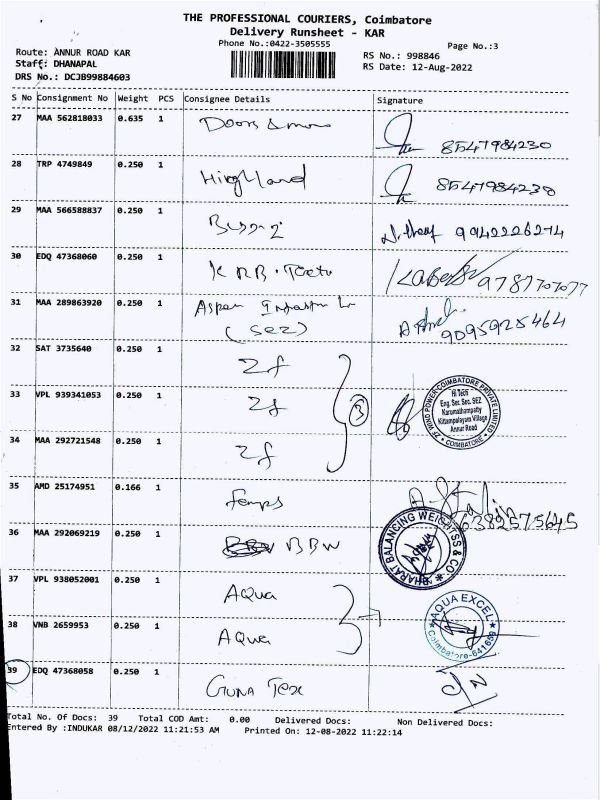 THE PROFESSIONAL COURIERS, Coimbatore
Delivery Runsheet - KAR
Phone No.:0422-3505555
Page No.:3
Route: ANNUR ROAD KAR
RS No.: 998846
Staff: DHANAPAL
RS Date: 12-Aug-2022
DRS No.: DCJB99884603
S No Consignment No Weight PCS Consignee Details Signature
27 MAA 562818033 0.635 1 Doors & more 8547984230
28 TRP 4749849 0.250 1 Highland 8547984230
29 MAA 566588837 0.250 1 9942226274
30 EDQ 47368060 0.250 1 KRB. 9787707077
31 MAA 289863920 0.250 1 Aspen (SEZ) 9095925464
32 SAT 3735640 0.250 1 Zf
33 VPL 939341053 0.250 1 Zf 3
ZF WIND POWER COIMBATORE PRIVATE LIMITED
Hi Tech
Eng. Sec. Sec. SEZ
Karumathampatty
Kittampalayam Village
Annur Road
* COIMBATORE *
34 MAA 292721548 0.250 1 Zf
35 AMD 25174951 0.166 1 Temps 6382575645
36 MAA 292069219 0.250 1 BBW
BHARAT BALANCING WEIGHTSS & CO
37 VPL 938052001 0.250 1 Aqua
38 VNB 2659953 0.250 1 Aqua
AQUA EXCEL
Coimbatore-641659
39 EDQ 47368058 0.250 1 Guna Tex
Total No. Of Docs: 39 Total COD Amt: 0.00 Delivered Docs: Non Delivered Docs:
Entered By :INDUKAR 08/12/2022 11:21:53 AM Printed On: 12-08-2022 11:22:14